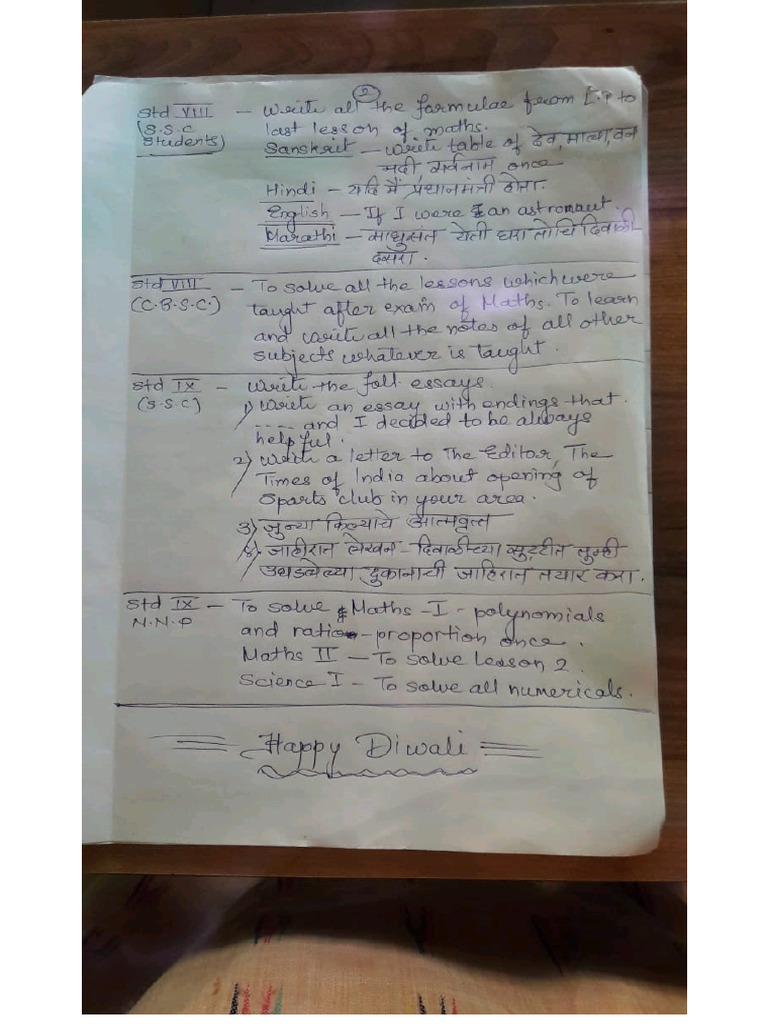 2
Std VIII - Write all the formulae from I.P to
(S.S.C last lesson of maths.
Students) Sanskrit - Write table of देव, माला, वन
नदी, सर्वनाम once
Hindi - यदि मैं प्रधानमंत्री होता.
English - If I were an astronaut.
Marathi - साधुसंत येती घरा तोचि दिवाळी
दसरा.
Std VIII - To solve all the lessons which were
(C.B.S.C.) taught after exam of Maths. To learn
and write all the notes of all other
subjects whatever is taught.
Std IX - Write the foll. essays.
(S.S.C) 1) Write an essay with endings that
.... and I decided to be always
helpful.
2) Write a letter to The Editor, The
Times of India about opening of
Sports club in your area.
3) जुन्या किल्याचे आत्मवृत्त
जाहीरात लेखन - दिवाळीच्या सुट्टीत तुम्ही
उघडलेल्या दुकानाची जाहिरात तयार करा.
Std IX - To solve Maths - I - polynomials
N.N.P and ratio - proportion once.
Maths II - To solve Lesson 2.
Science I - To solve all numericals.
Happy Diwali